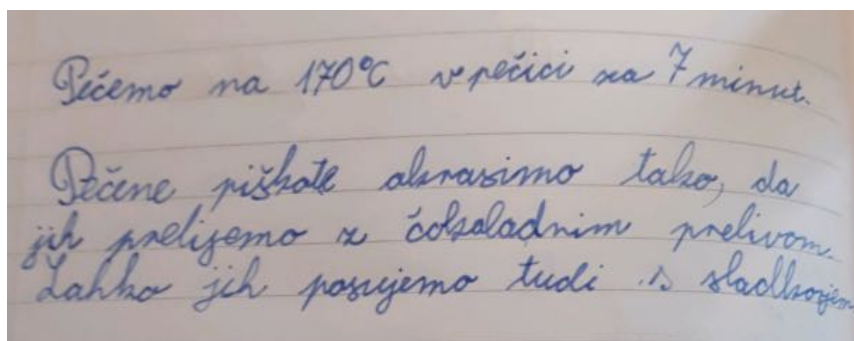 Pečemo na 170°C v pečici za 7 minut.
Pečene piškote okrasimo tako, da
jih prelijemo z čokoladnim prelivom.
Lahko jih posujemo tudi s sladkorjem